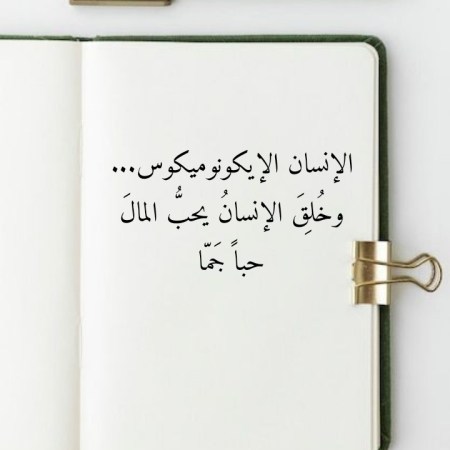 الإنسان الإيكونوميكوس...
وخُلِقَ الإنسانُ يحبُّ المالَ
حباً جَمّا